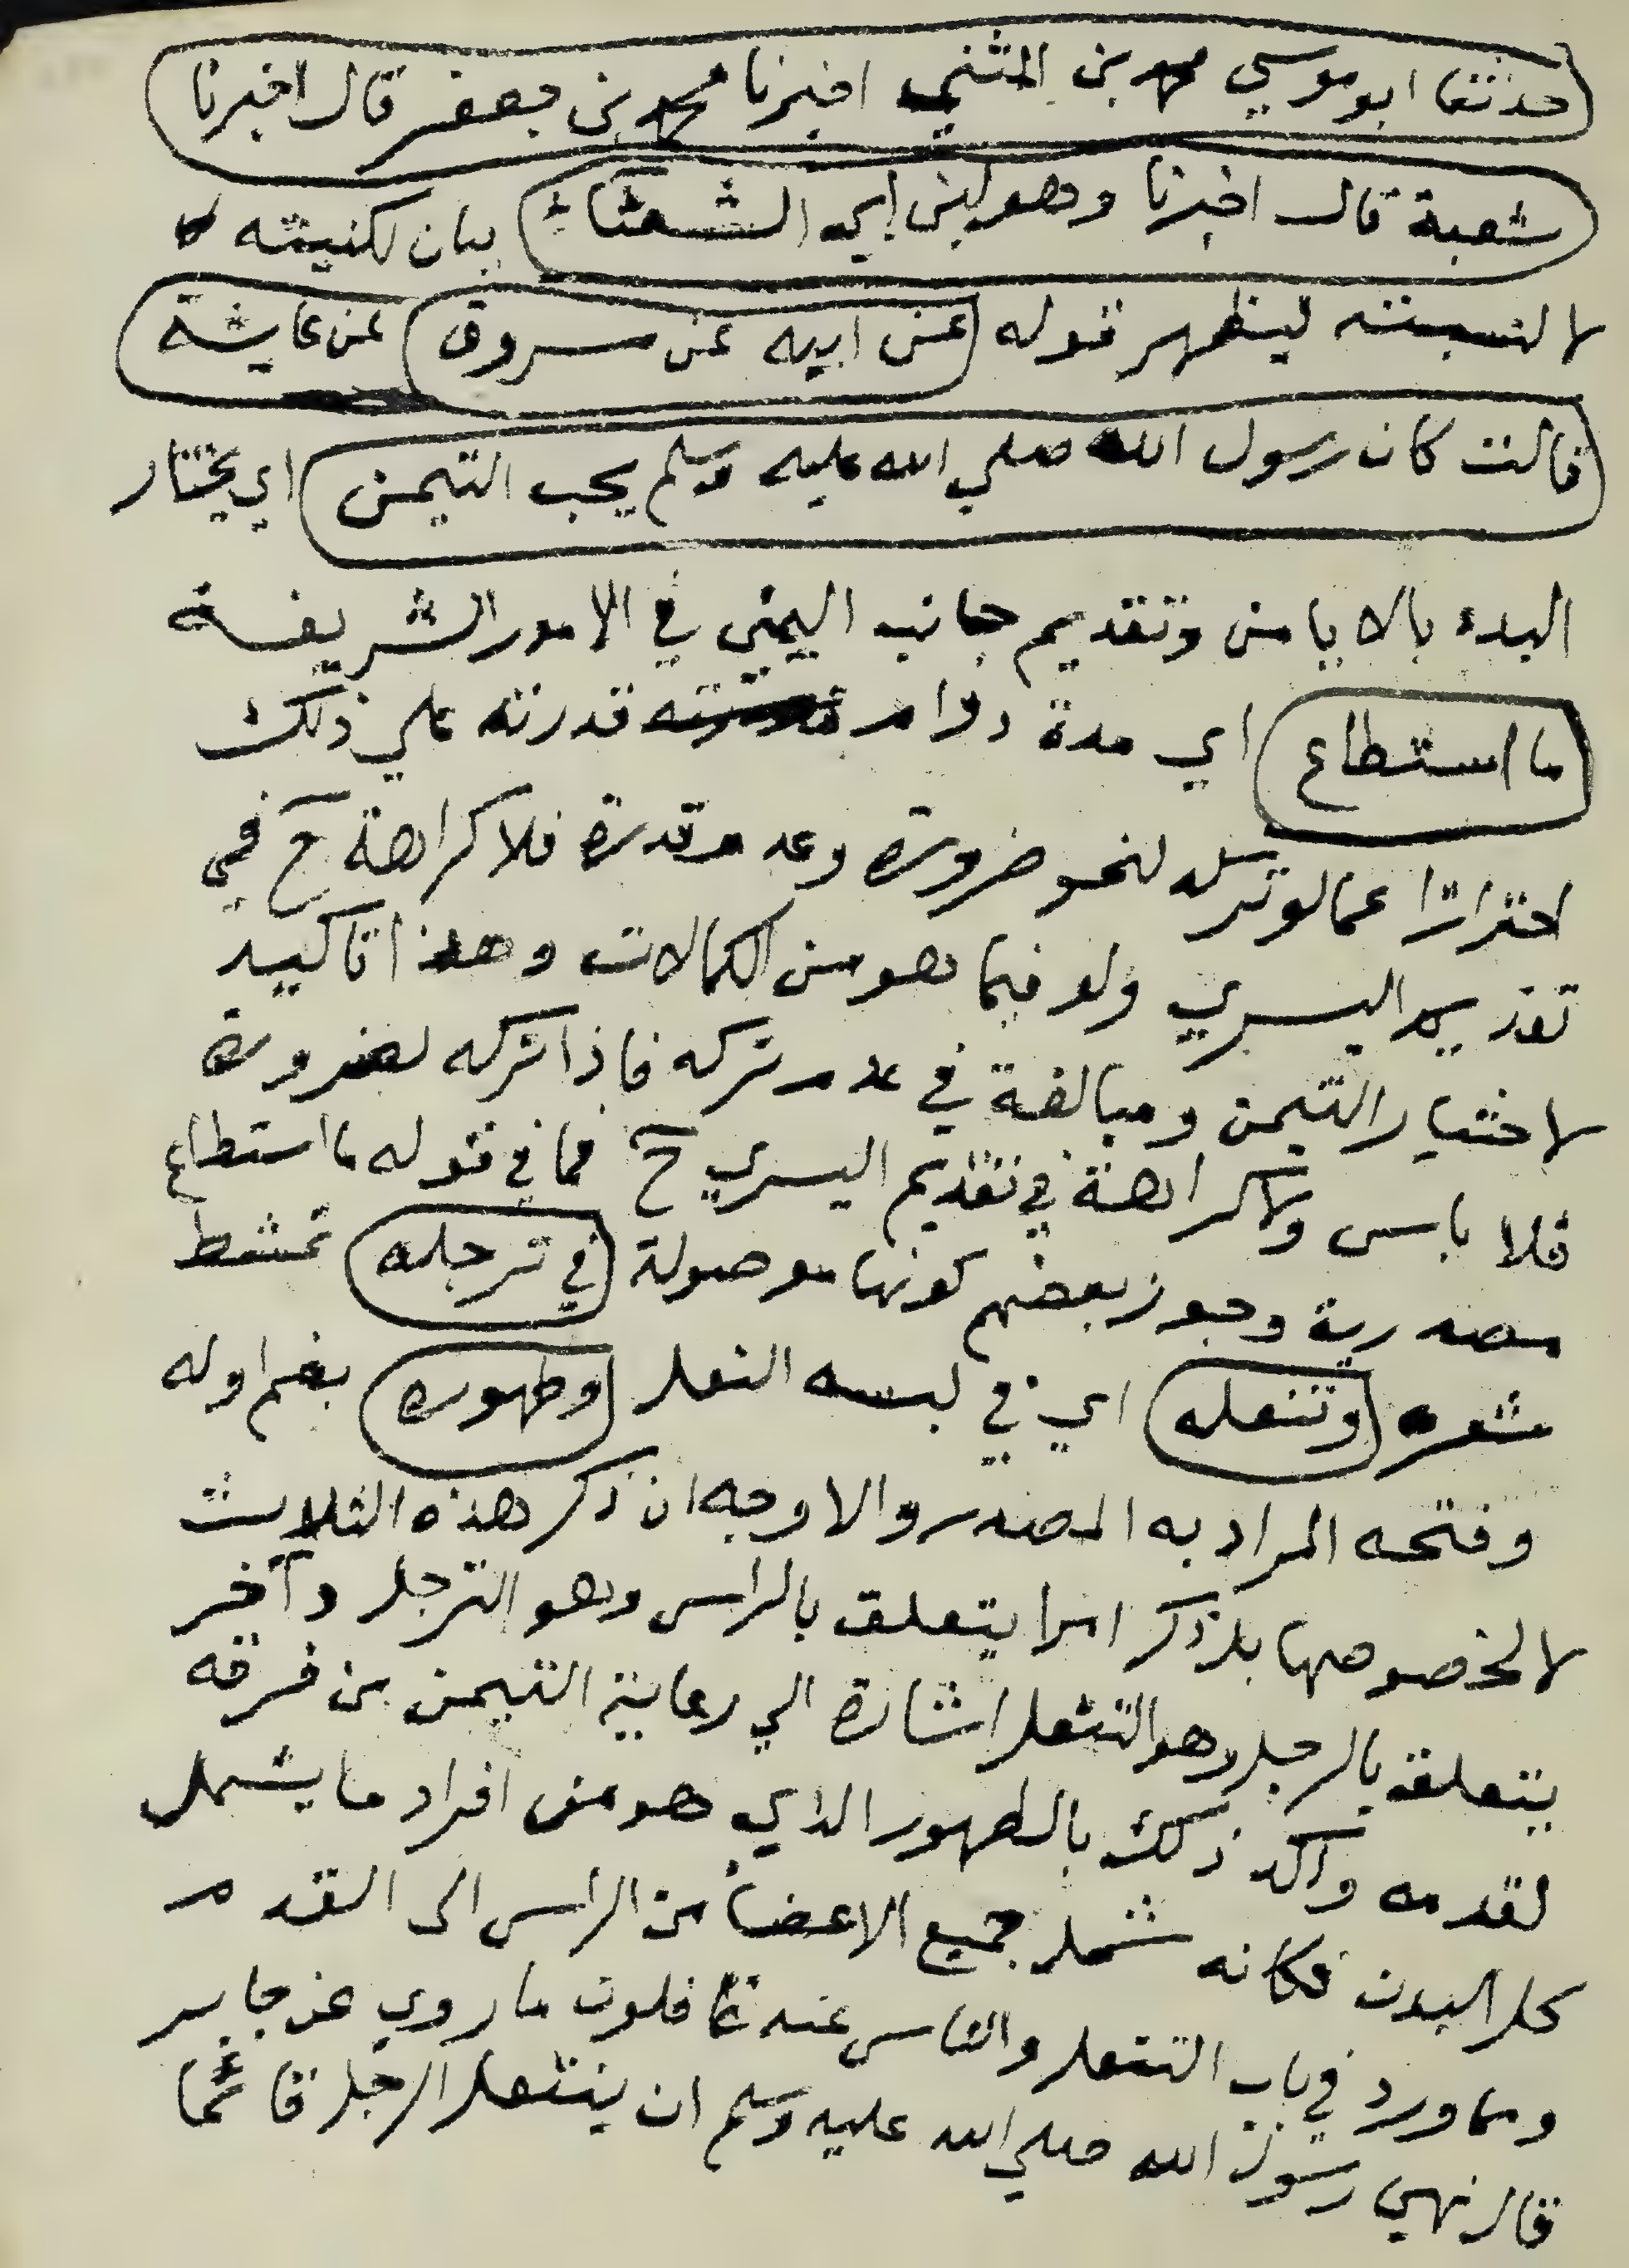 حدثنا ابو موسي محمد بن المثني اخبرنا محمد بن جعفر قال اخبرنا
شعبة قال اخبرنا وهو ابن ابي الشعثاء بيان لكنيته
لا لنسبته ليظهر قوله عن ابيه عن مسروق عن عايشة
قالت كان رسول الله صلي الله عليه وسلم يحب التيمن اي يختار
البدء بالايامن وتقديم جانب اليمني في الامور الشريفة
ما استطاع اي مدة دوام قدرته علي ذلك
احترازا عما لو ترك لنحو ضرورة وعدم قدرة فلا كراهة ح في
تقديم اليسري ولو فيما هو من الكمالات وهذا تاكيد
لاختيار التيمن ومبالغة في عدم تركه فاذا تركه لضرورة
فلا باس ولا كراهة في تقديم اليسري ح فما في قوله ما استطاع
مصدرية وجوز بعضهم كونها موصولة في ترجله تمشط
شعره وتنعله اي في لبسه النعل وطهوره بضم اوله
وفتحه المراد به المصدر والاوجه ان ذكر هذه الثلاث
لا لخصوصها بل ذكر امرا يتعلق بالراس وهو الترجل وآخر
يتعلق بالرجل وهو التنعل اشارة الي رعاية التيمن من فرقه
لقدمه واكد ذلك بالطهور الذي هو من افراد ما يشمل
كل البدن فكانه شمل جميع الاعضا من الراس الى القدم
ومما ورد في باب التنعل والناس عنه غافلون ما روي عن جابر
قال نهي رسول الله صلي الله عليه وسلم ان ينتعل الرجل قائما